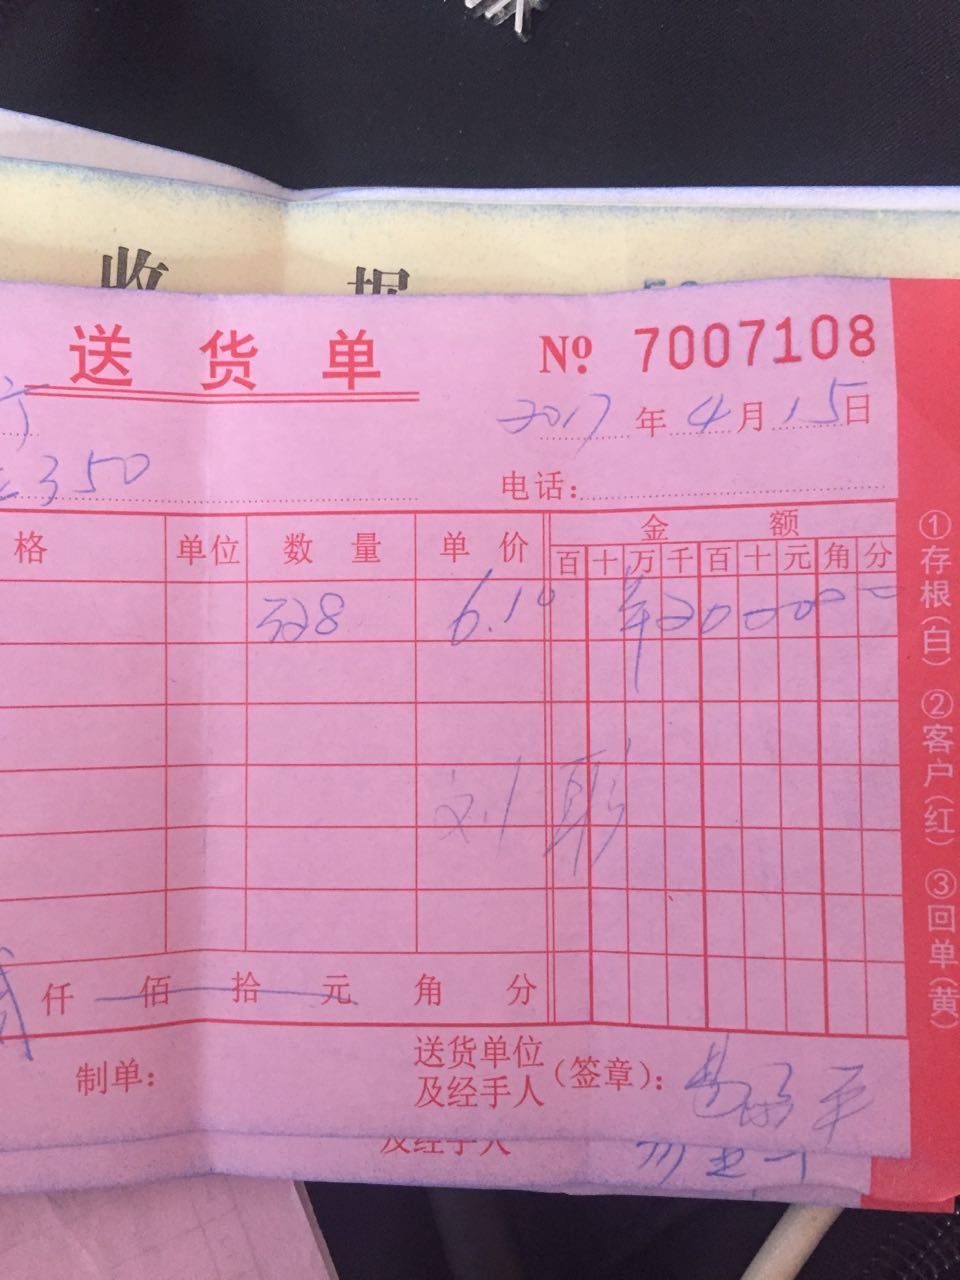 收 据
送 货 单 № 7007108
2017 年 4 月 15 日
350 电话:
格 单位 数 量 单 价 金 额
百 十 万 千 百 十 元 角 分
328 6.10 ¥ 2 0 0 0 0 0
刘
贰 仟 佰 拾 元 角 分
制单: 送货单位
及经手人 (签章): 平
及经手人
①存根(白) ②客户(红) ③回单(黄)